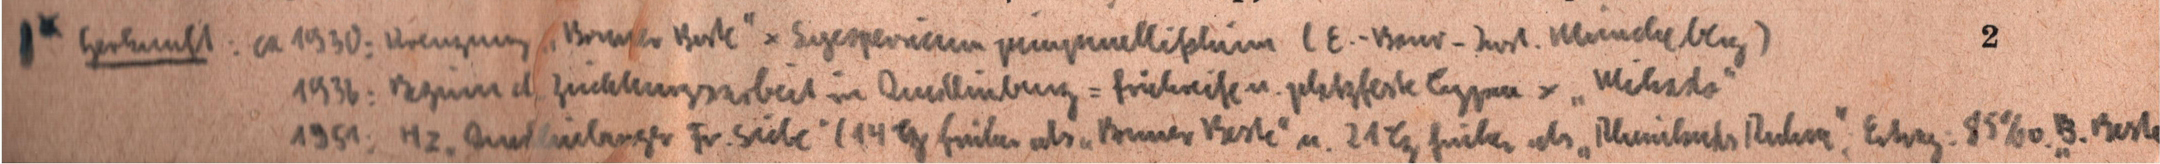 Herkunft: ca 1930: Kreuzung „Bonner Beste“ × Lycopersicum pimpinellifolium (E.-Baur-Inst. Müncheberg) 2
1936: Beginn d. Züchtungsarbeit in Quedlinburg = frühreife u. platzfeste Typen × „Mikado“
1951: Hz. „Quedlinburger Fr. Liebe“ (14 Tg früher als „Bonner Beste“ u. 21 Tg früher als „Rheinlands Ruhm“; Ertrag: 85% v. „B. Beste